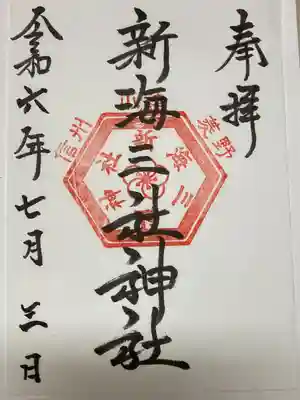 奉拝
新海三社神社
令和六年七月三日
信州
佐久
新海三社神社